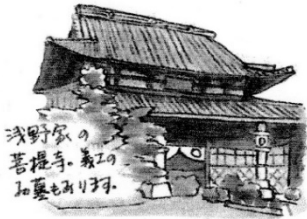 浅野家の
菩提寺。義士の
お墓もあります。